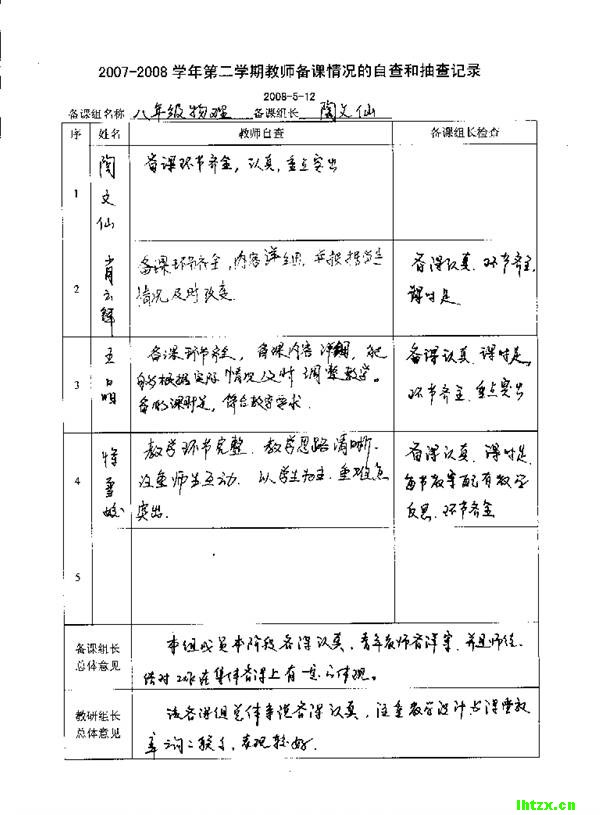 2007-2008 学年第二学期教师备课情况的自查和抽查记录
2008-5-12
备课组名称 八年级物理 备课组长 陶文仙
序 姓名 教师自查 备课组长检查
1 陶文仙 备课环节齐全，认真，重点突出
2 肖 备课环节齐全，内容详细，并根据
情况及时改变.
备课认真. 环节齐全.
课时足.
3 王 明 备课环节齐全，备课内容详细，能
根据实际情况及时调整教学。
备的课时足，符合教学要求.
备课认真. 课时足.
环节齐全. 重点突出
4 雪 教学环节完整. 教学思路清晰.
注重师生互动. 以学生为主. 重难点
突出.
备课认真. 课时足.
每节教案配有教学
反思. 环节齐全
5
备课组长
总体意见
本组成员本阶段备课认真，青年教师备详案.
对工作在集体备课上有一定的体现。
教研组长
总体意见
该备课组总体来说备课认真，注重教学设计
表现较好.
lhtzx.cn